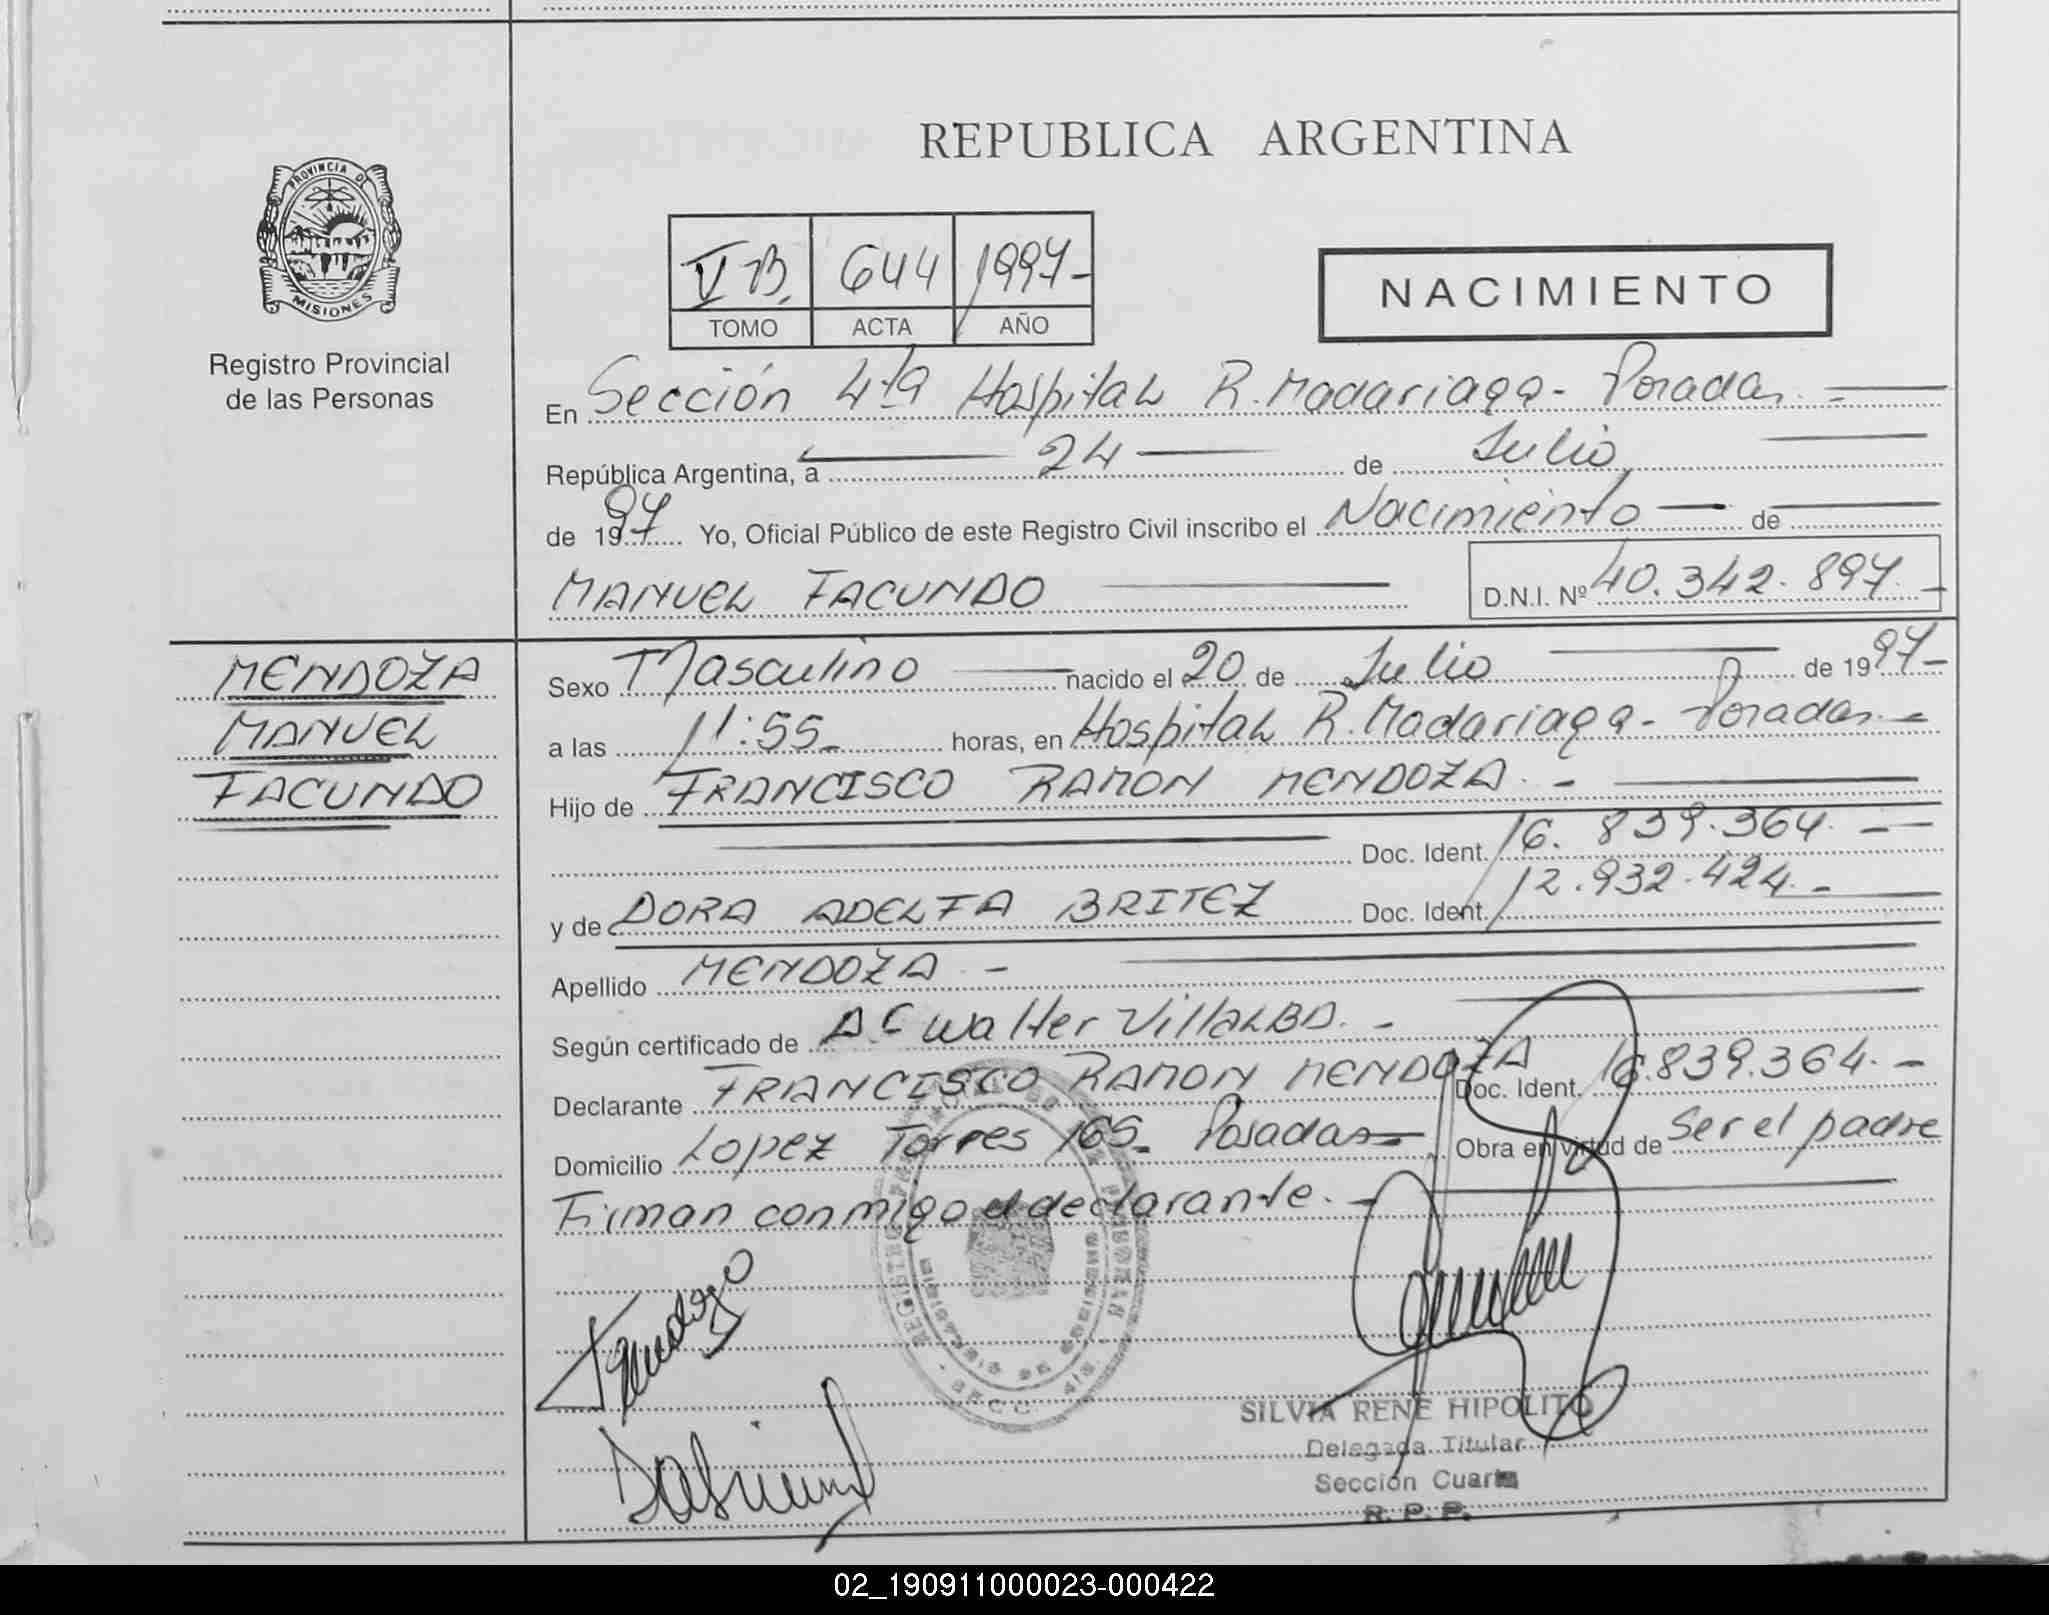 REPUBLICA ARGENTINA
PROVINCIA D
MISIONES
Registro Provincial
de las Personas
VB. 644 1997-
TOMO ACTA AÑO
NACIMIENTO
En Sección 4ta Hospital R. Madariaga - Posadas. -
República Argentina, a 24 de Julio
de 1997 Yo, Oficial Público de este Registro Civil inscribo el Nacimiento de
MANUEL FACUNDO D.N.I. Nº 40.342.897.-
MENDOZA
MANUEL
FACUNDO
Sexo Masculino nacido el 20 de Julio de 1997-
a las 11:55- horas, en Hospital R. Madariaga - Posadas. -
Hijo de FRANCISCO RAMON MENDOZA. -
Doc. Ident. 16.839.364. -
y de DORA ADELFA BRITEZ Doc. Ident. 12.932.424. -
Apellido MENDOZA. -
Según certificado de AC Walter VillALBA. -
Declarante FRANCISCO RAMON MENDOZA Doc. Ident. 16.839.364. -
Domicilio Lopez Torres 165- Posadas Obra en virtud de Ser el padre
Firman conmigo el declarante. -
SILVIA RENE HIPOLITO
Delegada Titular
Sección Cuarta
R. P. P.
02_190911000023-000422